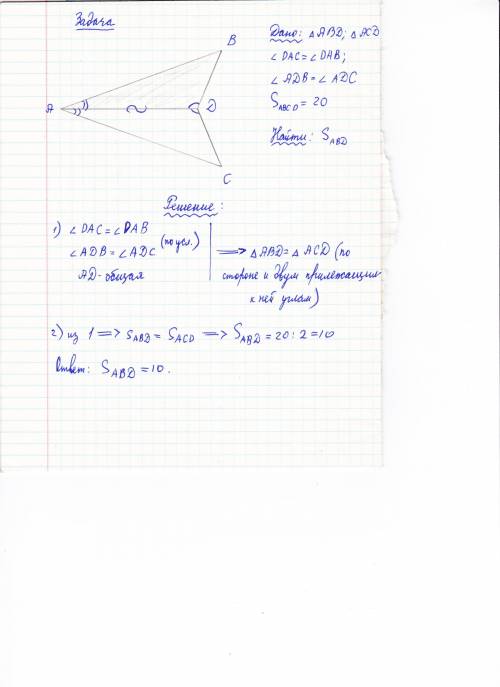 Задача
B
Дано: △ABD; △ACD
∠DAC=∠DAB;
∠ADB=∠ADC
A
D
S ABCD = 20
Найти: S ABD
C
Решение:
1) ∠DAC=∠DAB
∠ADB=∠ADC (по усл.)
AD-общая
⟹ △ABD=△ACD (по
стороне и двум прилежащим
к ней углам)
2) из 1 ⟹ S ABD = S ACD ⟹ S ABD = 20:2=10
Ответ: S ABD = 10.